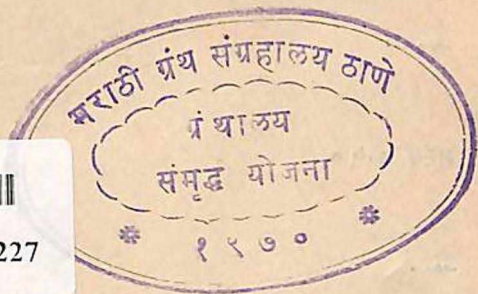 मराठी ग्रंथ संग्रहालय ठाणे
ग्रंथालय
संमृद्ध योजना
* १९७० *
227